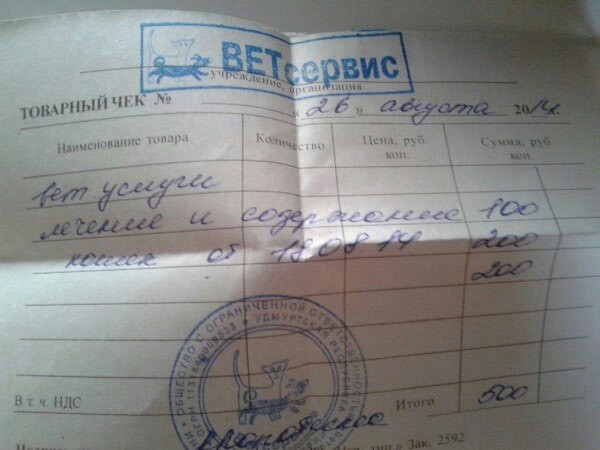 ВЕТсервис
учреждение, организация
ТОВАРНЫЙ ЧЕК № « 26 » августа 2014г.
Наименование товара Количество Цена, руб. коп. Сумма, руб. коп.
вет. услуги
лечение и содержание 100
кошек от 19.08.14 200
200
В т. ч. НДС Итого 500
ОБЩЕСТВО С ОГРАНИЧЕННОЙ ОТВЕТСТВЕННОСТЬЮ
УДМУРТСКАЯ РЕСПУБЛИКА
Зак. 2592